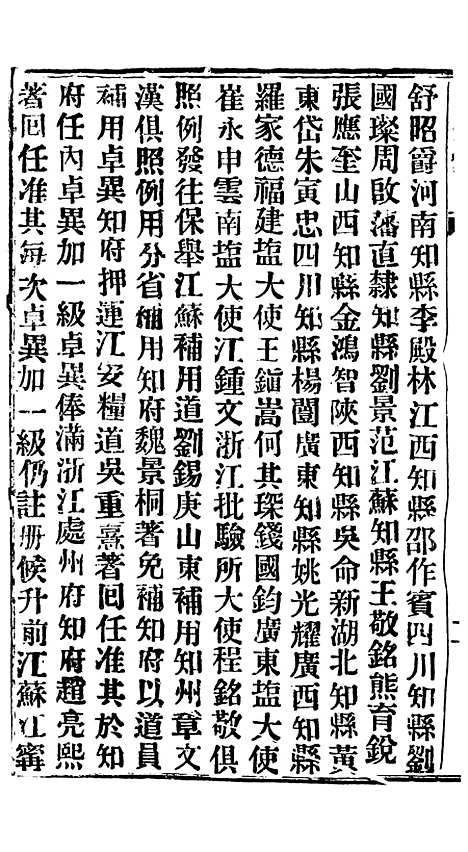 舒昭爵河南知縣李殿林江西知縣邵作賓四川知縣劉
國璨周啟藩直隸知縣劉景范江蘇知縣王敬銘熊育銳
張應奎山西知縣金鴻智陝西知縣吳命新湖北知縣黃
東岱朱寅忠四川知縣楊闓廣東知縣姚光耀廣西知縣
羅家德福建塩大使王鎭嵩何其琛錢國鈞廣東塩大使
崔永申雲南塩大使江鍾文浙江批驗所大使程銘敬俱
照例發往保舉江蘇補用道劉錫庚山東補用知州章文
漢俱照例用分省補用知府魏景桐著免補知府以道員
補用卓異知府押運江安糧道吳重熹著囘任准其於知
府任內卓異加一級卓異俸滿浙江處州府知府趙亮熙
著囘任准其每次卓異加一級仍註册候升前江蘇江寗